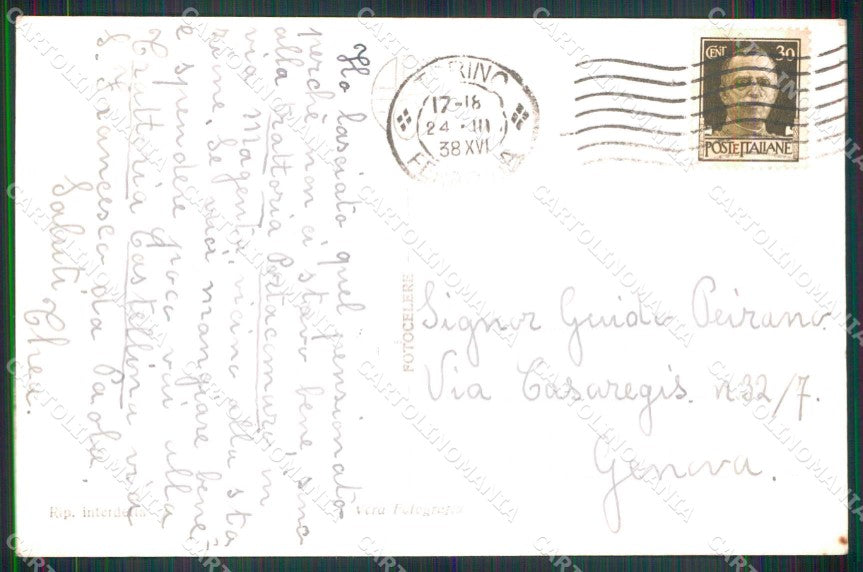 Ho lasciato quel pensionato
perchè non ci stavo bene, sino
alla trattoria Portacomaro, in
via Magenta vicino alla sta
zione. Se vuoi mangiare bene
e spendere poco vai alla
Trattoria Castellina via
S. Francesco da Paola.
Saluti
TORINO
17-18
24 · III
38 XVI
CENT 30
POSTE ITALIANE
FOTOCELERE
Signor Guido Peirano.
Via Casaregis. n 32/7.
Genova.
Rip. interdetta
Vera Fotografia
CARTOLINOMANIA